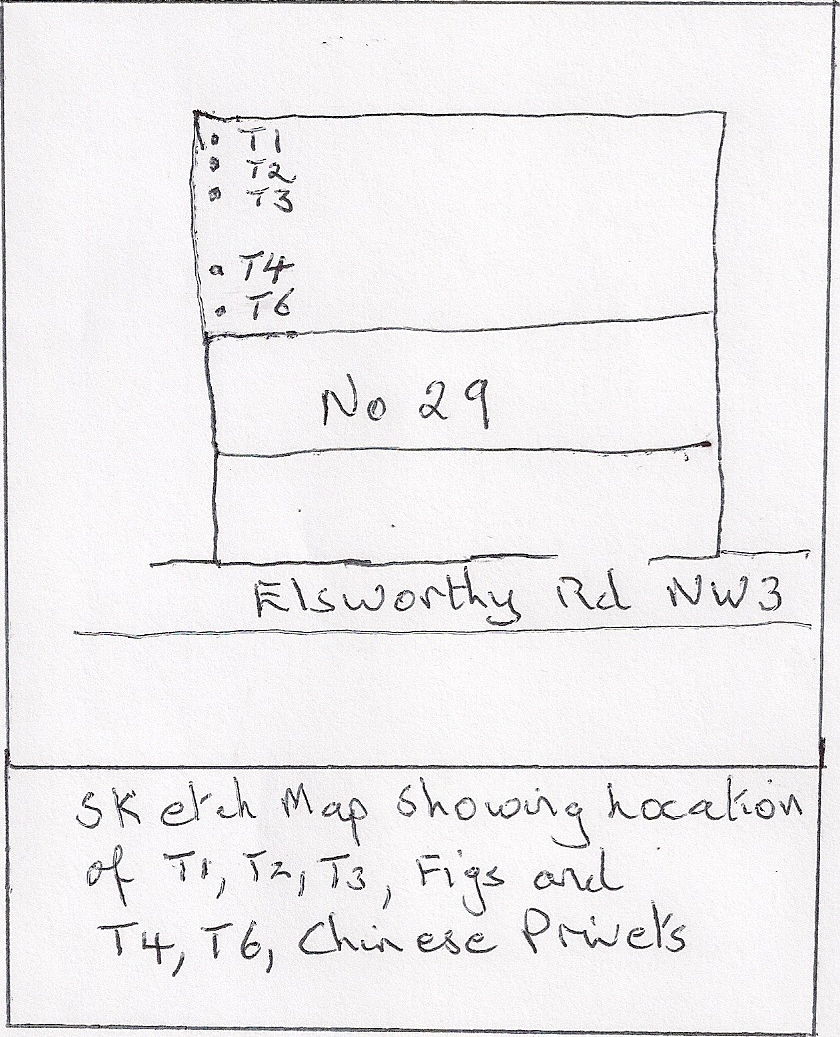 T1
T2
T3
T4
T6
No 29
Elsworthy Rd NW3
Sketch Map Showing Location
of T1, T2, T3, Figs and
T4, T6, Chinese Privets